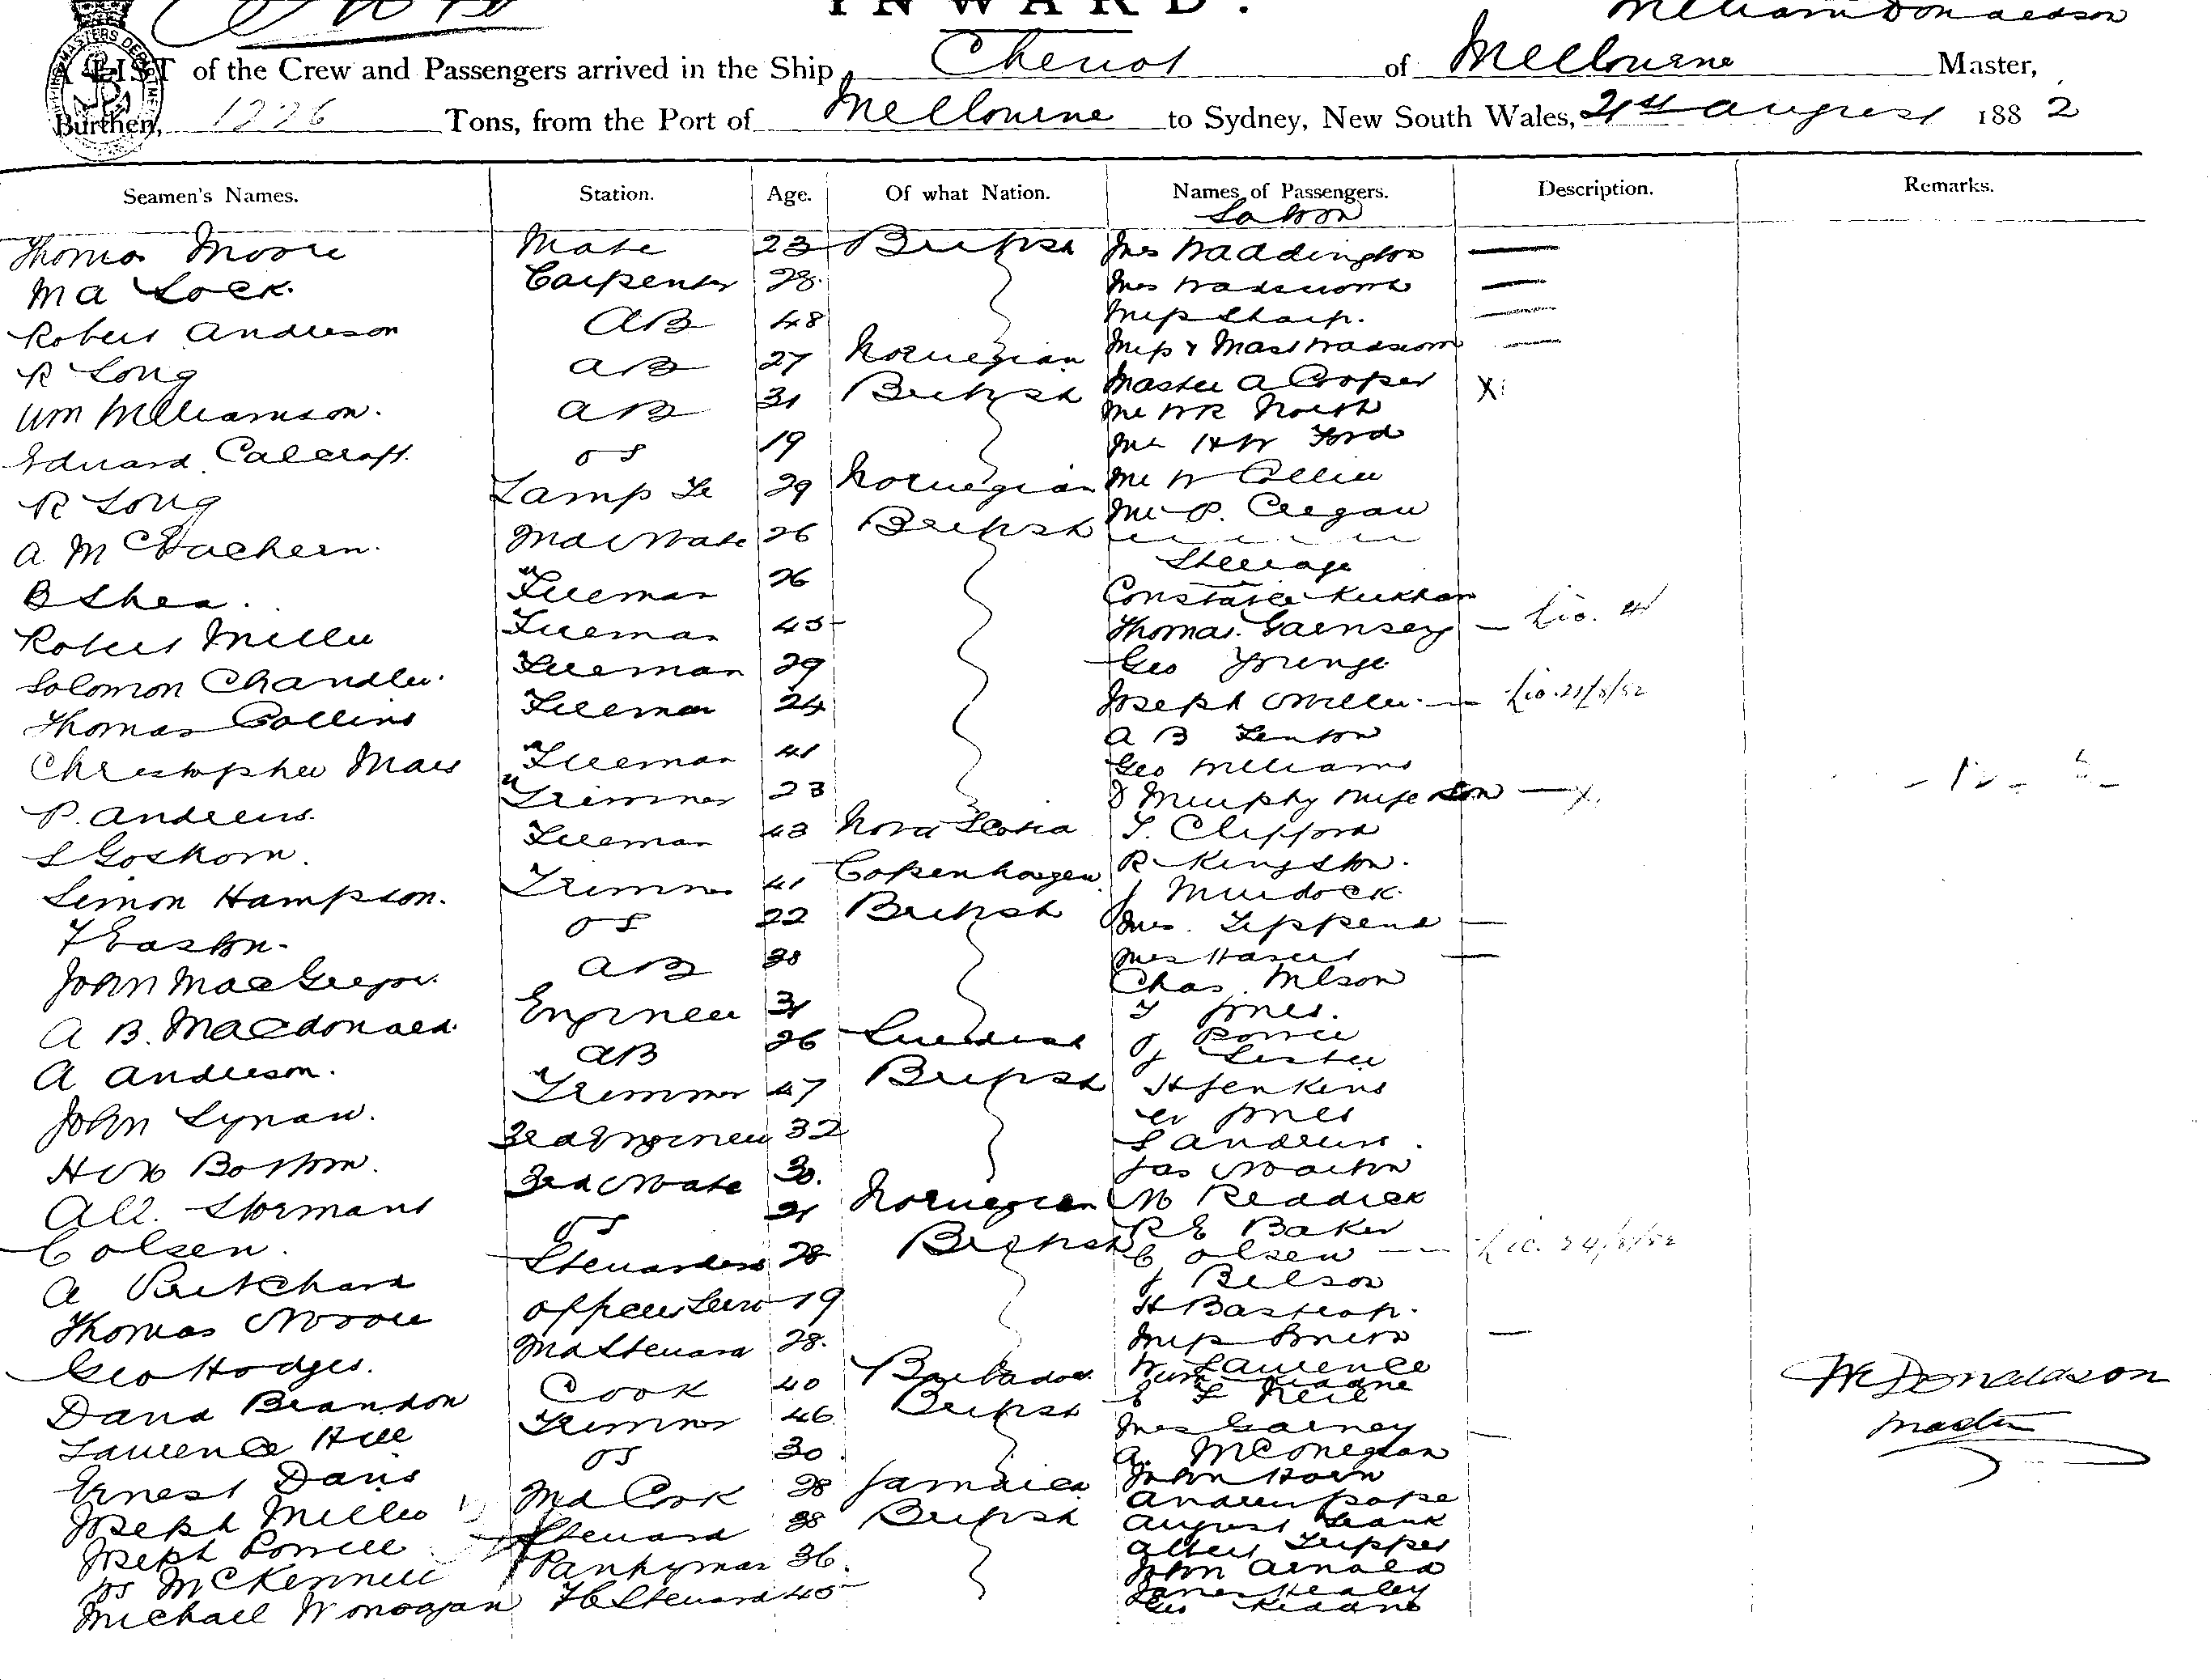 INWARD.
William Donaldson
A LIST of the Crew and Passengers arrived in the Ship Cheviot of Melbourne Master,
Burthen, 1226 Tons, from the Port of Melbourne to Sydney, New South Wales, 21st August 1882
Seamen's Names. Station. Age. Of what Nation. Names of Passengers. Description. Remarks.
Saloon
Thomas Moore Mate 23 British Mrs Waddington
M A Lock. Carpenter 28. Mrs Wadsworth
Robert Anderson AB 48 Miss Sharp.
R Long AB 27 Norwegian Miss & Mast Wadsworth
Wm Williamson. AB 31 British Master A Cooper X
Mr W R North
Edward Calcraft. OS 19 Mr H W Ford
R Long Lamp Tr 29 Norwegian Mr W Collier
A McEachern. 2nd Mate 26 British Mr P. Cregan
Steerage
B Shea. Fireman 26 Constable Kirkham
Robert Miller Fireman 45 Thomas Garnsey
Solomon Chandler. Fireman 29 Geo Younge
Thomas Collins Fireman 24 Joseph Miller. Lic. 21/8/82
A B Fenton
Christopher Mars Fireman 41 Geo Williams
P. Andrews. Trimmer 23 D Murphy Wife & Son X.
L Goskorn. Fireman 43 Nova Scotia T. Clifford
R Kingston.
Simon Hampson. Trimmer 41 Copenhagen J Murdock
F Easton. OS 22 British Mrs. Teppend
John MacGregor. AB 38 Mrs
Chas. Wilson
A B. Macdonald. Engineer 31 T Jones.
A Anderson. AB 26 Swedish J Power
J Lester
John Lynaw. Trimmer 47 British H Jenkins
W Jones
H Boston. 3rd Engineer 32 S Andrews.
All. Stormant 3rd Mate 30. Jas Martin
C Olsen. OS 21 Norwegian M Reddick
R E Baker
A Pritchard Stewardess 28 British C Olsen Lic. 24/8/82
J Belson
Thomas Moore Officers Serv 19 H Bastrop.
Geo Hodges. 2nd Steward 28. Miss
David Brandon Cook 40 Barbados Wm Lawrence
Laurence Hill Trimmer 46 British E F Neil
Mrs Garney
Ernest Davis OS 30 A. McOnegan
Joseph Miller 2nd Cook 28 Jamaica John Horn
Andrew Pope
Joseph Powell Steward 38 British August Frank
Albert Tupper
Js McKennell Pantryman 36. John Arnold
Michael Wonogan F C Steward 45 James Healey
Geo
W Donaldson
Master